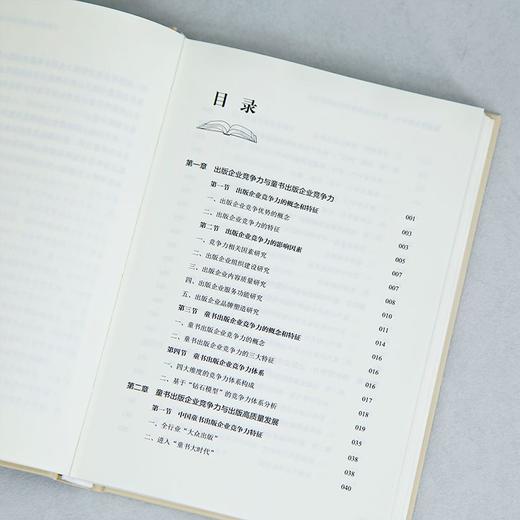 目 录
第一章 出版企业竞争力与童书出版企业竞争力 001
第一节 出版企业竞争力的概念和特征 003
一、出版企业竞争优势的概念 003
二、出版企业竞争力的特征 005
第二节 出版企业竞争力的影响因素 007
一、竞争力相关因素研究 007
二、出版企业组织建设研究 007
三、出版企业内容质量研究 008
四、出版企业服务功能研究 010
五、出版企业品牌塑造研究 011
第三节 童书出版企业竞争力的概念和特征 014
一、童书出版企业竞争力的概念 016
二、童书出版企业竞争力的三大特征 016
第四节 童书出版企业竞争力体系 017
一、四大维度的竞争力体系构成 018
二、基于“钻石模型”的竞争力体系分析 019
第二章 童书出版企业竞争力与出版高质量发展 035
第一节 中国童书出版企业竞争力特征 038
一、全行业“大众出版” 038
二、进入“童书大时代” 040